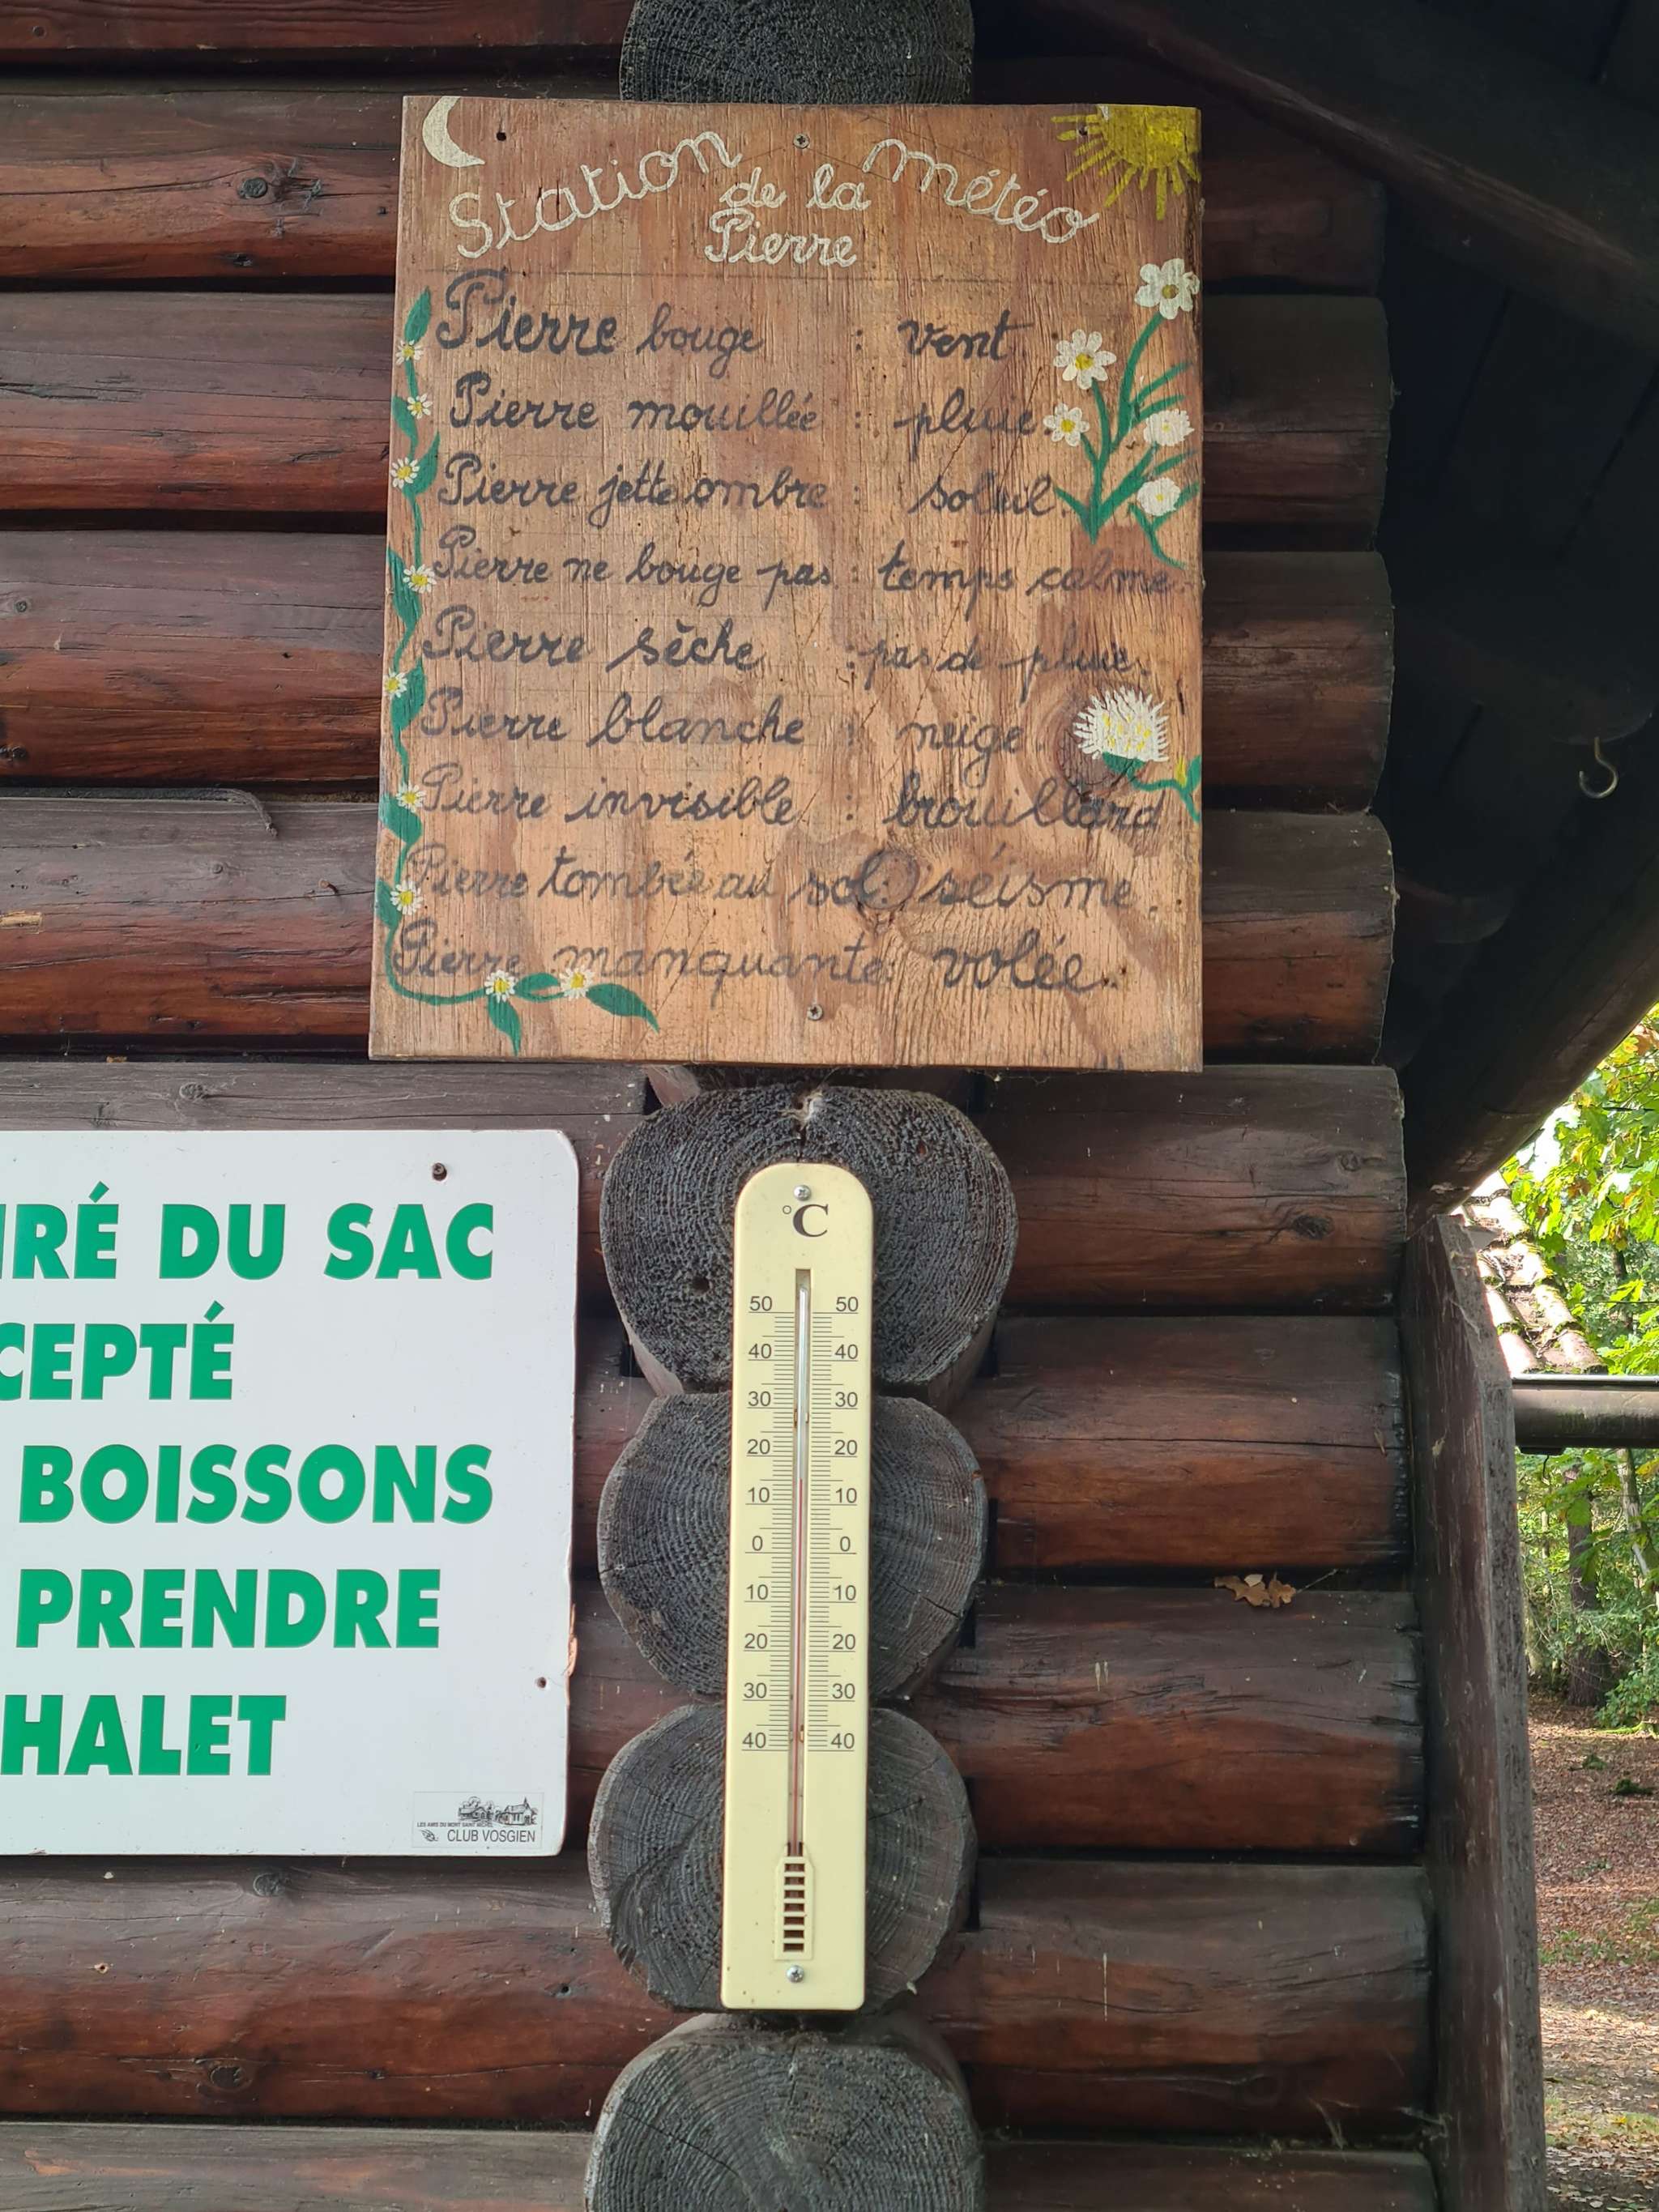 Station de la météo
Pierre
Pierre bouge : vent
Pierre mouillée : pluie.
Pierre jette ombre : soleil.
Pierre ne bouge pas : temps calme.
Pierre sèche : pas de pluie.
Pierre blanche : neige.
Pierre invisible : brouillard
Pierre tombée au sol : séisme.
Pierre manquante : volée.
IRÉ DU SAC
CEPTÉ
BOISSONS
PRENDRE
HALET
LES AMIS DU MONT SAINT MICHEL
CLUB VOSGIEN
°C
50 50
40 40
30 30
20 20
10 10
0 0
10 10
20 20
30 30
40 40